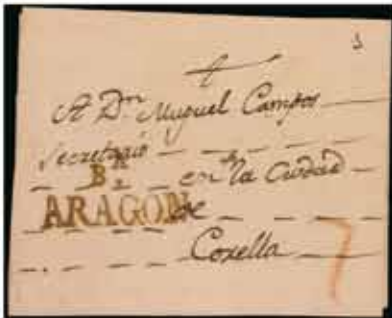 A Dn Miguel Campos
Secretario
en la Ciudad
B
ARAGON de
Corella